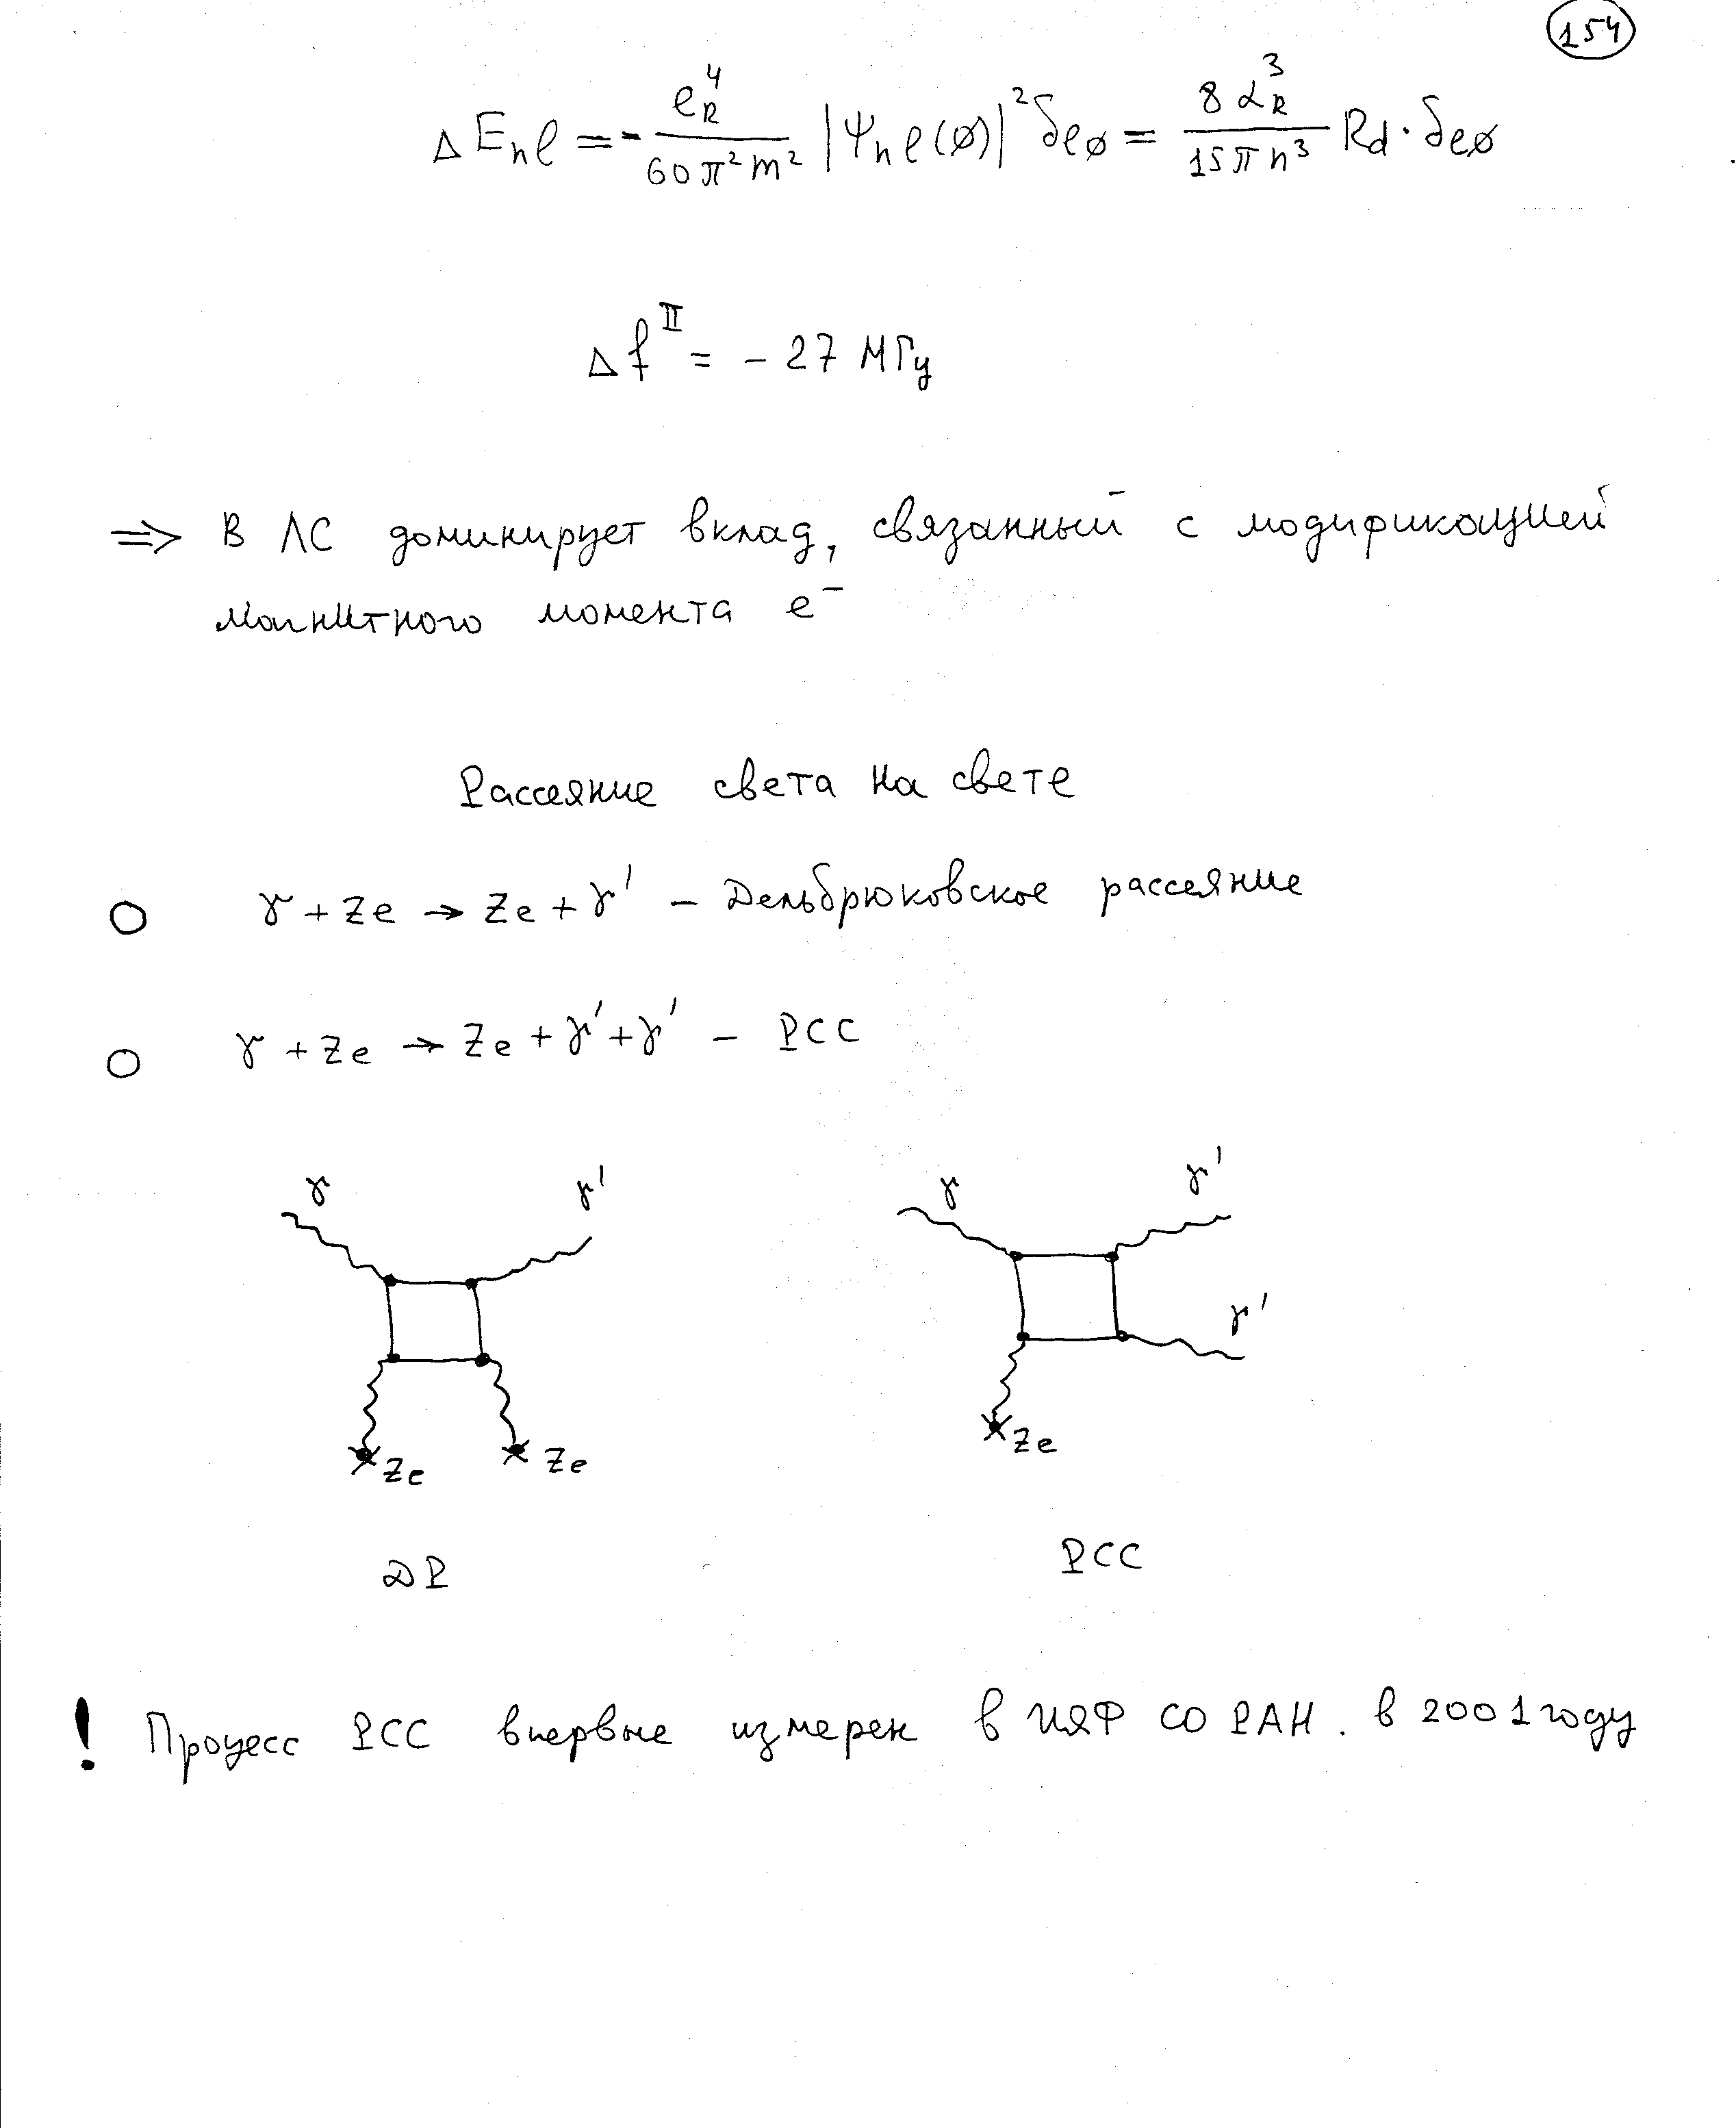 154
ΔE_{nl} = - \frac{e_R^4}{60π²m²} |Ψ_{nl}(∅)|² δ_{l∅} = \frac{8α_R^3}{15πn³} Rd · δ_{l∅}
Δf^{II} = - 27 МГц
⇒ В ЛС доминирует вклад, связанный с модификацией
магнитного момента e⁻
Рассеяние света на свете
γ + Ze → Ze + γ' – Дельбрюковское рассеяние
γ + Ze → Ze + γ' + γ' – РСС
γ γ' γ γ'
γ'
Ze Ze Ze
ДР РСС
! Процесс РСС впервые измерен в ИЯФ СО РАН. в 2001 году